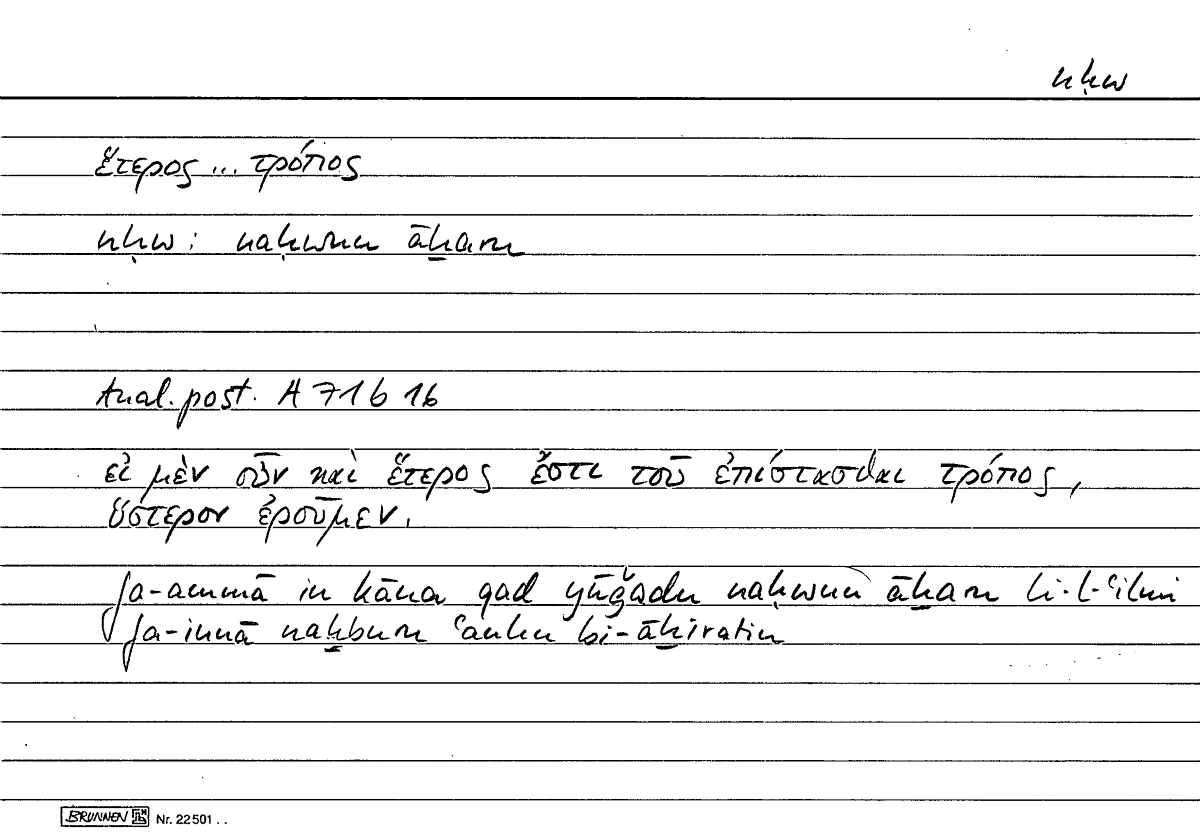 nḥw
ἕτερος ... τρόπος
nḥw : naḥwun āḫaru
Anal. post. A 71 b 16
εἰ μὲν οὖν καὶ ἕτερος ἔστι τοῦ ἐπίστασθαι τρόπος,
ὕστερον ἐροῦμεν.
fa-ammā in kāna qad yūǧadu naḥwun āḫaru li-l-ʿilmi
fa-innā naḫburu ʿanhu bi-āḫiratin
BRUNNEN Nr. 22501 . .